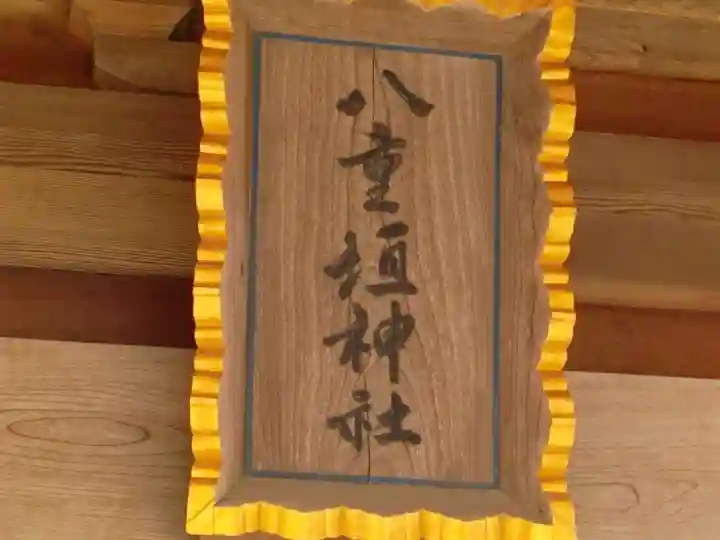 八重垣神社